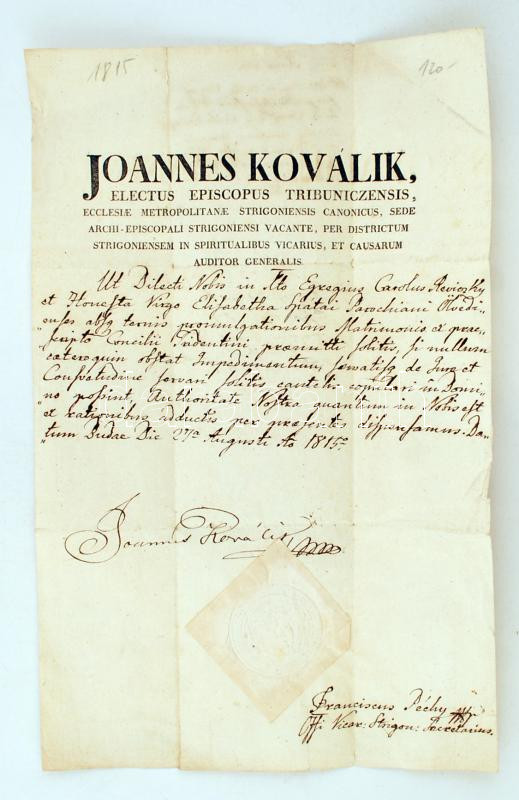 1815
120-
JOANNES KOVÁLIK,
ELECTUS EPISCOPUS TRIBUNICZENSIS,
ECCLESIÆ METROPOLITANÆ STRIGONIENSIS CANONICUS, SEDE
ARCHI-EPISCOPALI STRIGONIENSI VACANTE, PER DISTRICTUM
STRIGONIENSEM IN SPIRITUALIBUS VICARIUS, ET CAUSARUM
AUDITOR GENERALIS.
Ut Dilecti Nobis in Xto Egregius Carolus Reviczky
et Honesta Virgo Elisabetha Spátai Parochiani Ölvedi-
enses absq ternis promulgationibus Matrimonio et prae-
scripto Concilii Tridentini praemitti solitis, si nullum
caeteroquin obstat Impedimentum, servatisq de Jure et
Consvetudine servari solitis cautelis copulari in Domi-
no possint, Authoritate Nostra quantum in Nobis est
et rationibus adductis per praesentes dispensamus. Da-
tum Budae Die 27a Augusti Ao 1815o
Joannes Koválik
Franciscus Péchy
Offi Vicar: Strigon: Secretarius.